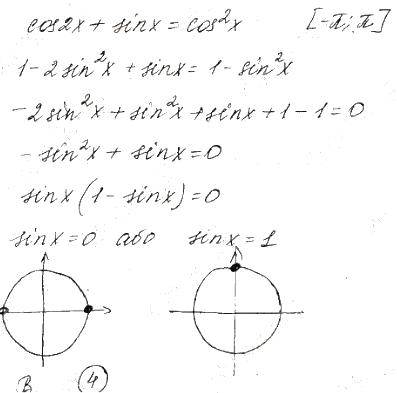 cos2x + sinx = cos²x [-π; π]
1-2sin²x + sinx = 1-sin²x
-2sin²x + sin²x + sinx + 1 - 1 = 0
-sin²x + sinx = 0
sinx(1 - sinx) = 0
sinx = 0 або sinx = 1
В 4